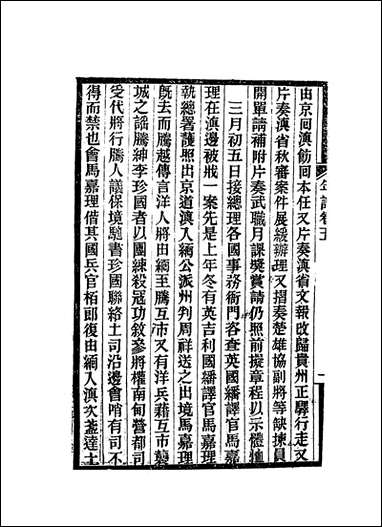 由京回滇飭回本任又片奏滇省文報改歸貴州正驛行走又
片奏滇省秋審案件展緩辦理又摺奏楚雄協副將等缺揀員
開單請補附片奏武職月課獎賞請仍照前擬章程以示體恤
三月初五日接總理各國事務衙門咨查英國繙譯官馬嘉
理在滇邊被戕一案先是上年冬有英吉利國繙譯官馬嘉理
執總署護照出京道滇入緬公派州判周祥送之出境馬嘉理
既去而騰越傳言洋人將由緬至騰互市又有洋兵藉互市襲
城之謠騰紳李珍國者以團練殺寇功敘參將權南甸營都司
受代將行騰人議保境馳書珍國聯絡土司沿邊會哨有司不
得而禁也會馬嘉理偕其國兵官柏郎復由緬入滇次盞達土
年譜卷五